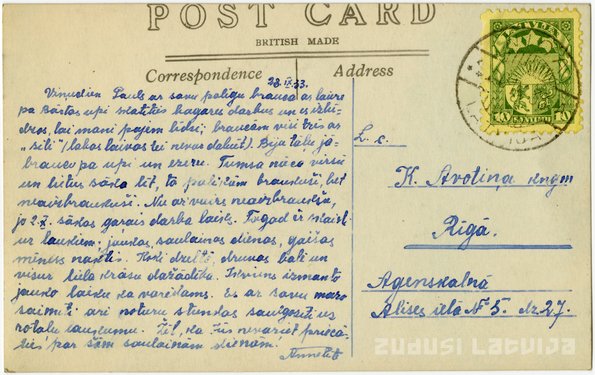 POST CARD
BRITISH MADE
Correspondence
Address
LATVIJA
10 SANTIMU 10
22.IX.33.
Viņudien Pauls ar savu palīgu brauca ar laivu
pa Bārtas upi skatīties
tai mani paņem līdzi; braucām visi trīs ar
(labas laivas tei nevar dabūt). Bija tālu jā-
brauc pa upi un ezeru. Tumsa nāca virsū
un lietus sāka līt, tā palikām braukuši, bet
neaizbraukuši. Nu ar vairs neaizbraukšu,
jo sākas garais darba laiks. Tagad ir skaisti
uz laukiem, jaukas, saulainas dienas, gaišas
mēness naktis. Koki drusku balti un
visur liela krāsu dažādība. Ikviens izmanto
jauko laiku kā varēdams. Es ar savu mazo
saimi arī noturu stundas saulgozī uz
rotaļu laukumu. Žēl, ka Jūs nevariet priecā-
ties par šām saulainām dienām!
Annele
L. c.
K. Avotiņa kngm
Rīgā.
Agenskalnā
Alises ielā № 5. dz. 27.
zudusi Latvija